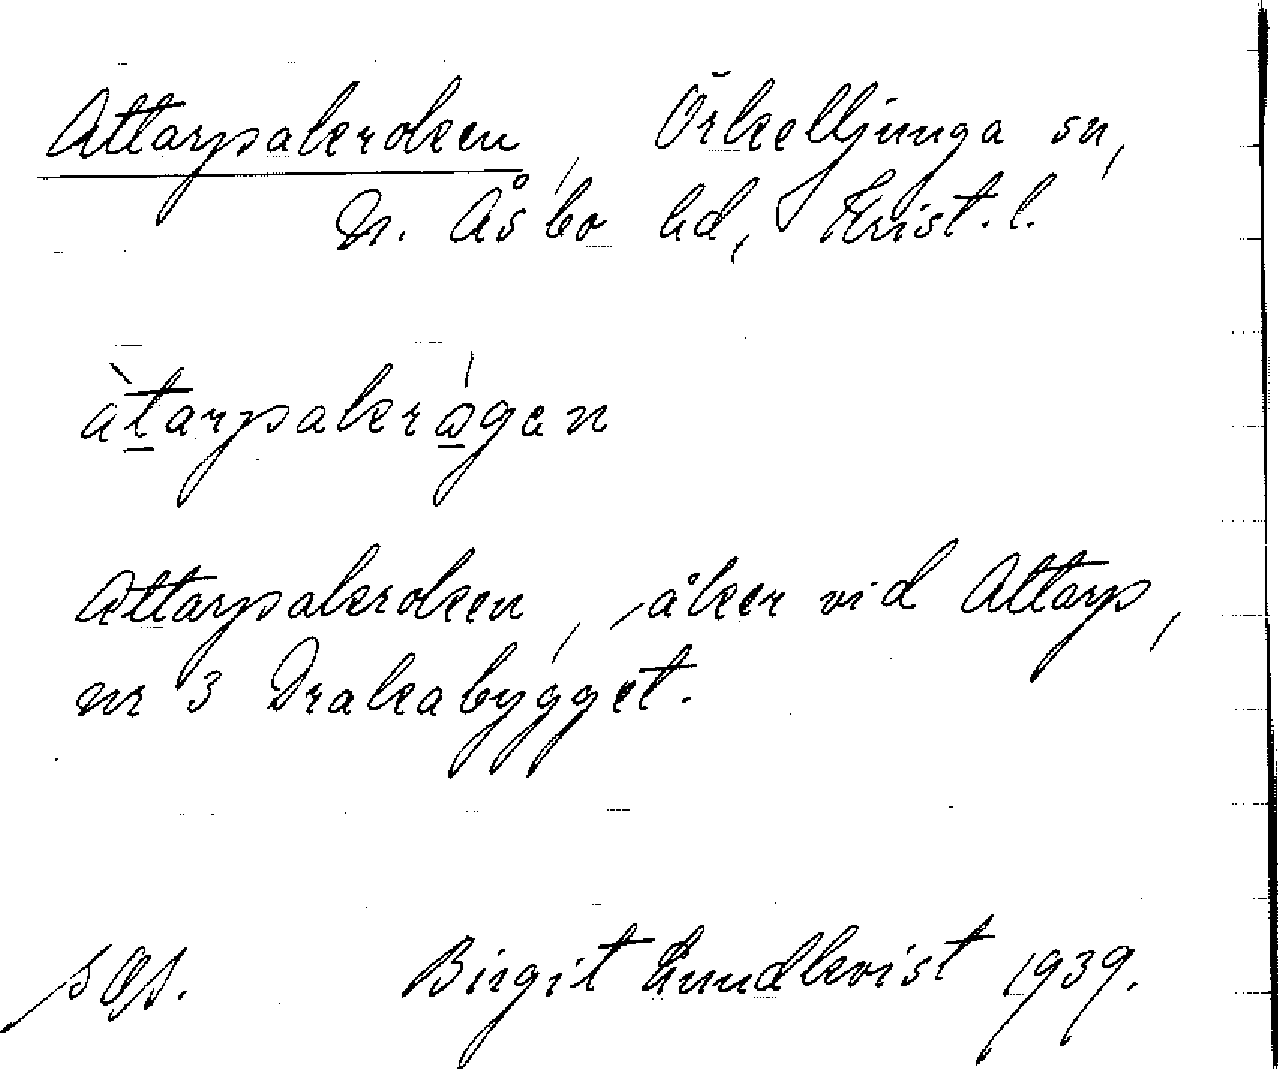 Attarpsakroken, Örkelljunga sn,
N. Åsbo hd, Krist. l.
àtarpsakrågen
Attarpsakroken, åker vid Attarp,
nr 3 Drakabygget.
Birgit Lundkvist 1939.